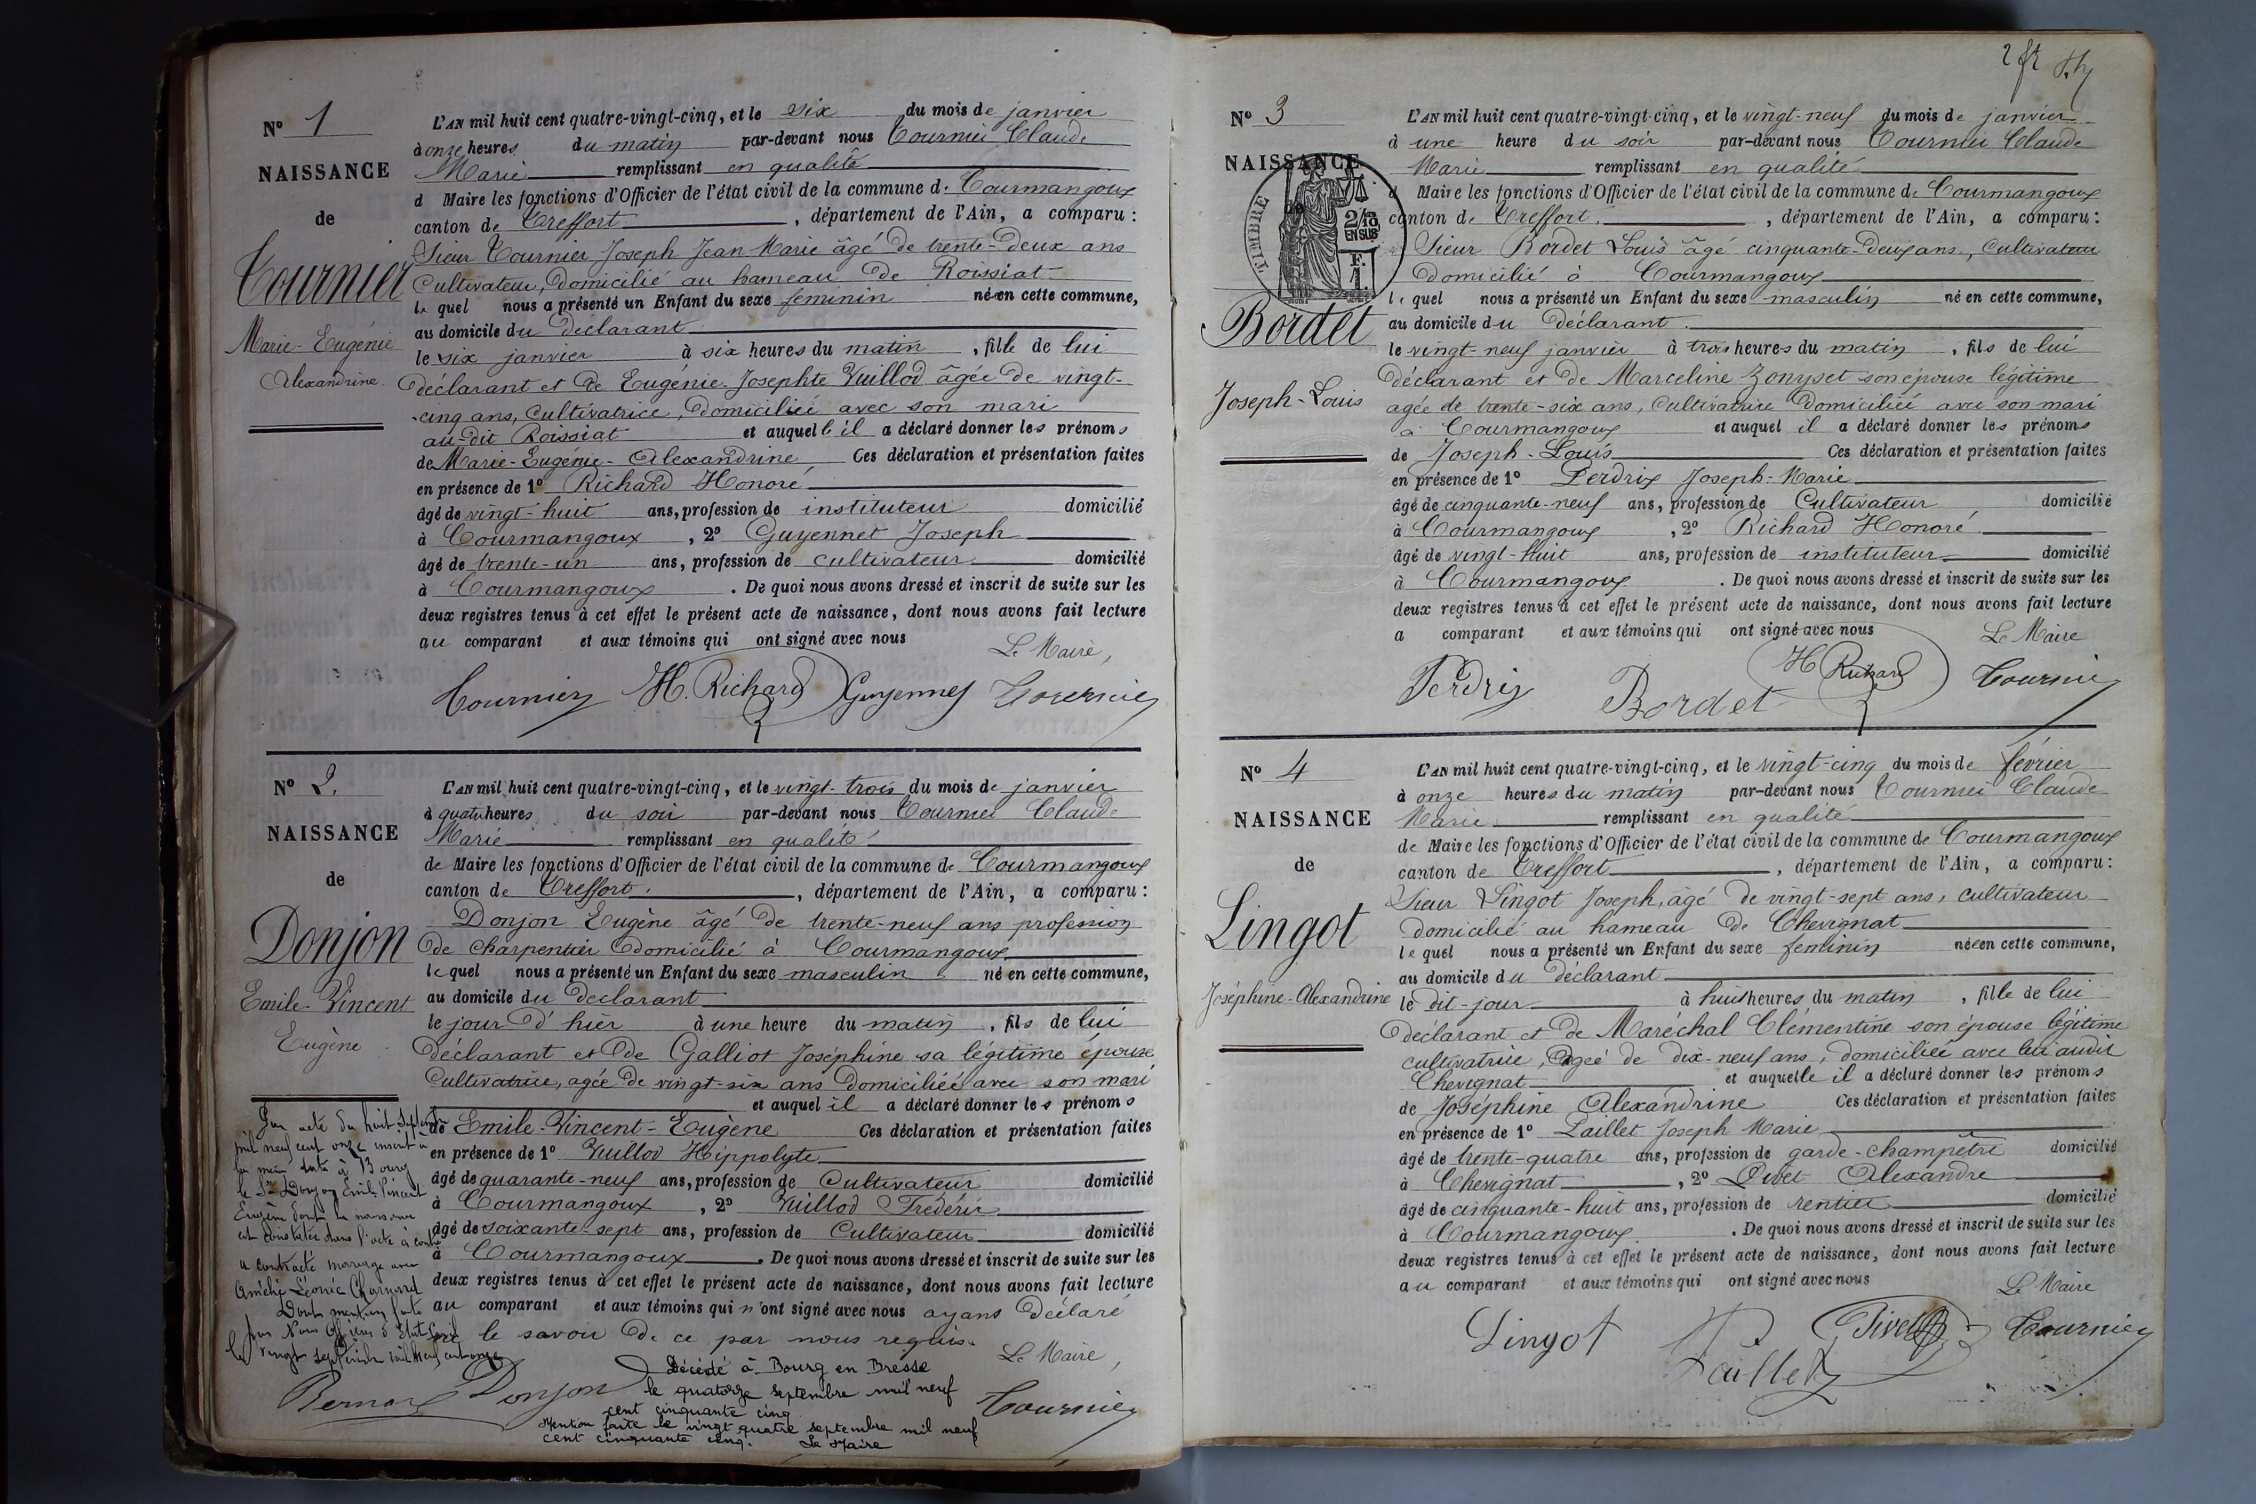 Nº 1
NAISSANCE
de
Tournier
Marie-Eugénie
Alexandrine
L'AN mil huit cent quatre-vingt-cinq, et le six du mois de janvier
à onze heures du matin par-devant nous Tournier Claude
Marie remplissant en qualité
d Maire les fonctions d'Officier de l'état civil de la commune de Courmangoux
canton de Treffort, département de l'Ain, a comparu:
Sieur Tournier Joseph Jean Marie âgé de trente-deux ans
Cultivateur, domicilié au hameau de Roissiat
le quel nous a présenté un Enfant du sexe feminin née en cette commune,
au domicile du déclarant
le six janvier à six heures du matin, fille de lui
déclarant et de Eugénie Josephte Vuillod âgée de vingt-
-cinq ans, Cultivatrice, domiciliée avec son mari
au-dit Roissiat et auquelle il a déclaré donner les prénoms
de Marie-Eugénie-Alexandrine Ces déclaration et présentation faites
en présence de 1º Richard Honoré
âgé de vingt-huit ans, profession de instituteur domicilié
à Courmangoux, 2º Guyennet Joseph
âgé de trente-un ans, profession de cultivateur domicilié
à Courmangoux. De quoi nous avons dressé et inscrit de suite sur les
deux registres tenus à cet effet le présent acte de naissance, dont nous avons fait lecture
au comparant et aux témoins qui ont signé avec nous
Le Maire,
Tournier H. Richard Guyennet Tournier
Nº 2.
NAISSANCE
de
Donjon
Emile-Vincent
Eugène
L'AN mil huit cent quatre-vingt-cinq, et le vingt-trois du mois de janvier
à quatre heures du soir par-devant nous Tournier Claude
Marie remplissant en qualité
de Maire les fonctions d'Officier de l'état civil de la commune de Courmangoux
canton de Treffort, département de l'Ain, a comparu:
Donjon Eugène âgé de trente-neuf ans profession
de charpentier domicilié à Courmangoux
le quel nous a présenté un Enfant du sexe masculin né en cette commune,
au domicile du déclarant
le jour d'hier à une heure du matin, fils de lui
déclarant et de Galliot Joséphine sa légitime épouse
Cultivatrice, agée de vingt-six ans domiciliée avec son mari
et auquel il a déclaré donner les prénoms
de Emile-Vincent-Eugène Ces déclaration et présentation faites
en présence de 1º Vuillod Hippolyte
âgé de quarante-neuf ans, profession de Cultivateur domicilié
à Courmangoux, 2º Vuillod Frédéric
âgé de soixante-sept ans, profession de Cultivateur domicilié
à Courmangoux. De quoi nous avons dressé et inscrit de suite sur les
deux registres tenus à cet effet le présent acte de naissance, dont nous avons fait lecture
au comparant et aux témoins qui n'ont signé avec nous ayans déclaré
ne le savoir de ce par nous requis.
Le Maire,
Donjon Tournier
Par acte du huit septembre
mil neuf cent onze inscrit à
la même date à Bourg
le Sr Donjon Emile Vincent
Eugène dont la naissance
est constatée dans l'acte à contre
a contracté mariage avec
Léonie Charnard
Dont mention faite
par Nous Officier d'Etat Civil
le vingt septembre mil neuf cent onze
Bernard
Décédé à Bourg en Bresse
le quatorze septembre mil neuf
cent cinquante cinq
Mention faite le vingt quatre septembre mil neuf
cent cinquante cinq. Le Maire
Nº 3
NAISSANCE
TIMBRE
2/10
EN SUS
F.
1
Bordet
Joseph-Louis
L'AN mil huit cent quatre-vingt-cinq, et le vingt-neuf du mois de janvier
à une heure du soir par-devant nous Tournier Claude
Marie remplissant en qualité
d Maire les fonctions d'Officier de l'état civil de la commune de Courmangoux
canton de Treffort, département de l'Ain, a comparu:
Sieur Bordet Louis âgé cinquante-deux ans, Cultivateur
domicilié à Courmangoux
le quel nous a présenté un Enfant du sexe masculin né en cette commune,
au domicile du déclarant.
le vingt-neuf janvier à trois heures du matin, fils de lui
déclarant et de Marceline Zonyset son épouse légitime
agée de trente-six ans, Cultivatrice domiciliée avec son mari
à Courmangoux et auquel il a déclaré donner les prénoms
de Joseph-Louis Ces déclaration et présentation faites
en présence de 1º Perdrix Joseph-Marie
âgé de cinquante-neuf ans, profession de Cultivateur domicilié
à Courmangoux, 2º Richard Honoré
âgé de vingt-huit ans, profession de instituteur domicilié
à Courmangoux. De quoi nous avons dressé et inscrit de suite sur les
deux registres tenus à cet effet le présent acte de naissance, dont nous avons fait lecture
a comparant et aux témoins qui ont signé avec nous
Le Maire
Perdrix Bordet H Richard Tournier
Nº 4
NAISSANCE
de
Lingot
Joséphine-Alexandrine
L'AN mil huit cent quatre-vingt-cinq, et le vingt-cinq du mois de février
à onze heures du matin par-devant nous Tournier Claude
Marie remplissant en qualité
de Maire les fonctions d'Officier de l'état civil de la commune de Courmangoux
canton de Treffort, département de l'Ain, a comparu:
Sieur Lingot Joseph, âgé de vingt-sept ans, cultivateur
domicilié au hameau de Chevignat
le quel nous a présenté un Enfant du sexe feminin née en cette commune,
au domicile du déclarant
le dit-jour à huit heures du matin, fille de lui
déclarant et de Maréchal Clémentine son épouse légitime
cultivatrice, agée de dix-neuf ans, domiciliée avec lui audit
Chevignat et auquelle il a déclaré donner les prénoms
de Joséphine Alexandrine Ces déclaration et présentation faites
en présence de 1º Paillet Joseph Marie
âgé de trente-quatre ans, profession de garde-champêtre domicilié
à Chevignat, 2º Pivet Alexandre
âgé de cinquante-huit ans, profession de rentier domicilié
à Courmangoux. De quoi nous avons dressé et inscrit de suite sur les
deux registres tenus à cet effet le présent acte de naissance, dont nous avons fait lecture
au comparant et aux témoins qui ont signé avec nous
Le Maire
Lingot Paillet Pivet Tournier